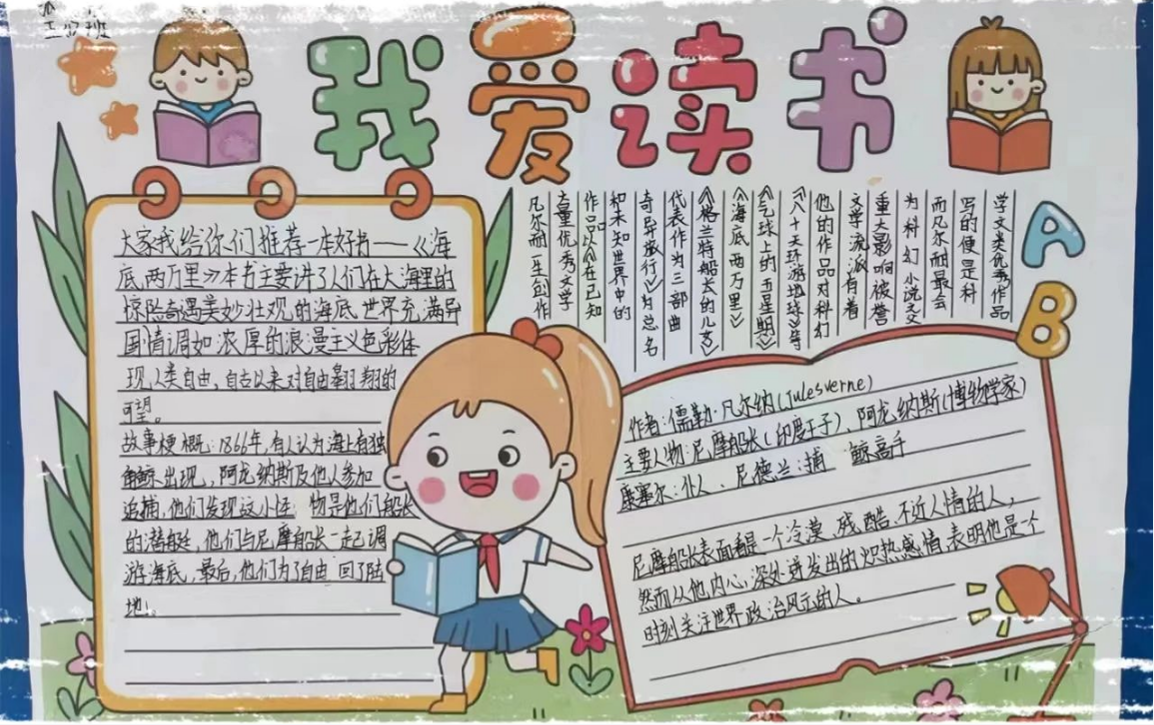 班
我爱读书
大家我给你们推荐一本好书——《海
底两万里》本书主要讲了人们在大海里的
惊险奇遇美妙壮观的海底世界充满异
国情调如浓厚的浪漫主义色彩体
现人类自由,自古以来对自由翱翔的
渴望。
故事梗概:1866年,有人认为海上有独
角鲸出现,阿龙纳斯及他人参加
追捕,他们发现这小怪 物是他们船长
的潜艇,他们与尼摩船长一起调
游海底,最后,他们为了自由 回了陆
地。
凡尔耐一生创作
大量优秀文学
作品以《在已知
和未知世界中的
奇异旅行》为总名
代表作为三部曲
《格兰特船长的儿女》
《海底两万里》
《气球上的五星期》
《八十天环游地球》等
他的作品对科幻
文学流派有着
重大影响被誉
为科幻小说之父
而凡尔耐最会
写的便是科
学文类优秀作品
A
B
作者:儒勒·凡尔纳(Julesverne)
主要人物:尼摩船长(印度王子)、阿龙纳斯(博物学家)
康塞尔:仆人、尼德兰:捕 鲸高手
尼摩船长表面看是一个冷漠、残酷、不近人情的人,
然而从他内心深处迸发出的炽热感情,表明他是一个
时刻关注世界政治风云的人。